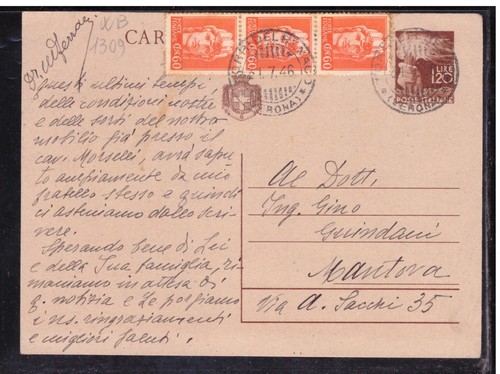 CAR
1309
LIRE
1,20
7.46
(VERONA)
(VERONA)
Questi ultimi tempi
delle condizioni nostre
e delle sorti del nostro
mobilio già presso il
cav. Morselli, avrà sapu-
to ampiamente da mio
fratello stesso e quindi
ci asteniamo dallo scri-
vere.
Sperando bene di Lei
e della Sua famiglia, ri-
maniamo in attesa di
q. notizia e Le porgiamo
i ns. ringraziamenti
e migliori saluti.
Al Dott.
Ing. Gino
Mantova
Via A. Sacchi 35